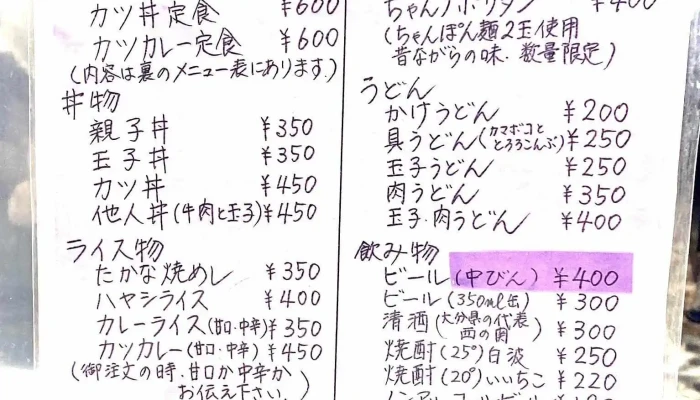 カツ丼定食 ¥600
カツカレー定食 ¥600
(内容は裏のメニュー表にあります。)
丼物
親子丼 ¥350
玉子丼 ¥350
カツ丼 ¥450
他人丼(牛肉と玉子) ¥450
ライス物
たかな焼めし ¥350
ハヤシライス ¥400
カレーライス(甘口・中辛) ¥350
カツカレー(甘口・中辛) ¥450
(御注文の時、甘口か中辛か
お伝え下さい。)
¥400
(ちゃんぽん麺2玉使用
昔ながらの味、数量限定)
うどん
かけうどん ¥200
具うどん(カマボコと
とろろこんぶ) ¥250
玉子うどん ¥250
肉うどん ¥350
玉子・肉うどん ¥400
飲み物
ビール(中びん) ¥400
ビール(350ml缶) ¥300
清酒(大分県の代表
西の関) ¥300
焼酎(25°)白波 ¥250
焼酎(20°)いいちこ ¥220